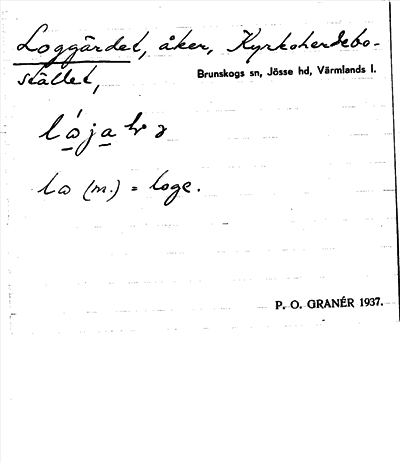 Loggärdet, åker, Kyrkoherdebo-
stället,
Brunskogs sn, Jösse hd, Värmlands l.
(m.) = loge.
P. O. GRANÉR 1937.